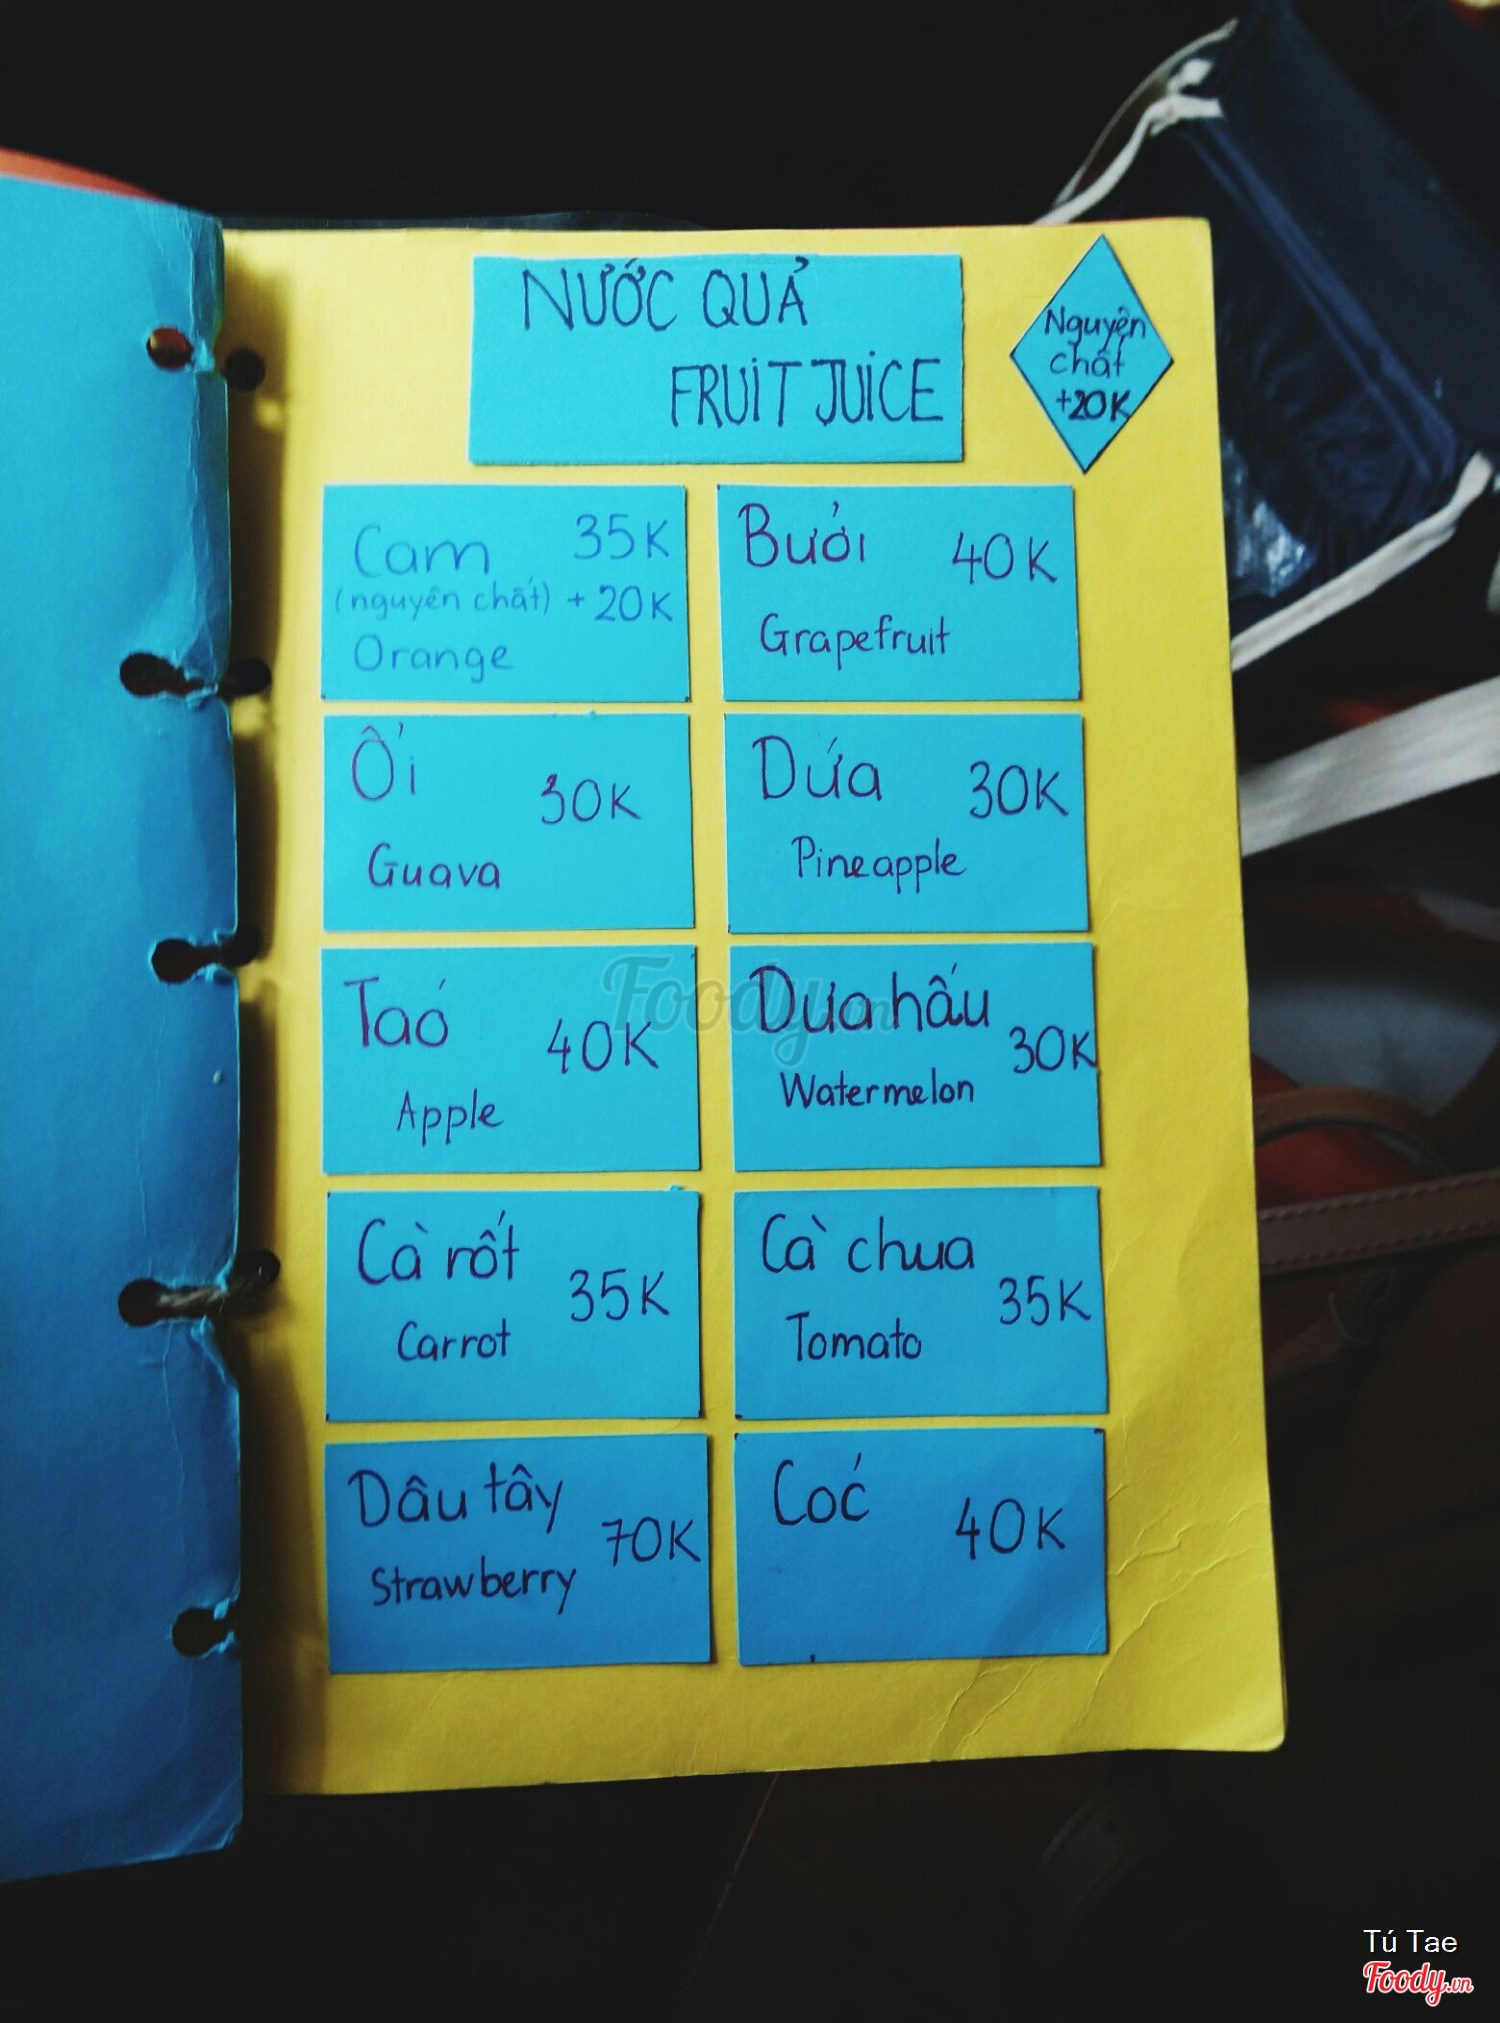 NƯỚC QUẢ
FRUIT JUICE
Nguyên
chất
+20K
Cam 35K
(nguyên chất) + 20K
Orange
Bưởi 40K
Grapefruit
Ổi 30K
Guava
Dứa 30K
Pineapple
Táo 40K
Apple
Dưa hấu 30K
Watermelon
Cà rốt 35K
Carrot
Cà chua 35K
Tomato
Dâu tây 70K
Strawberry
Cóc 40K
Foody.vn
Tú Tae
Foody.vn